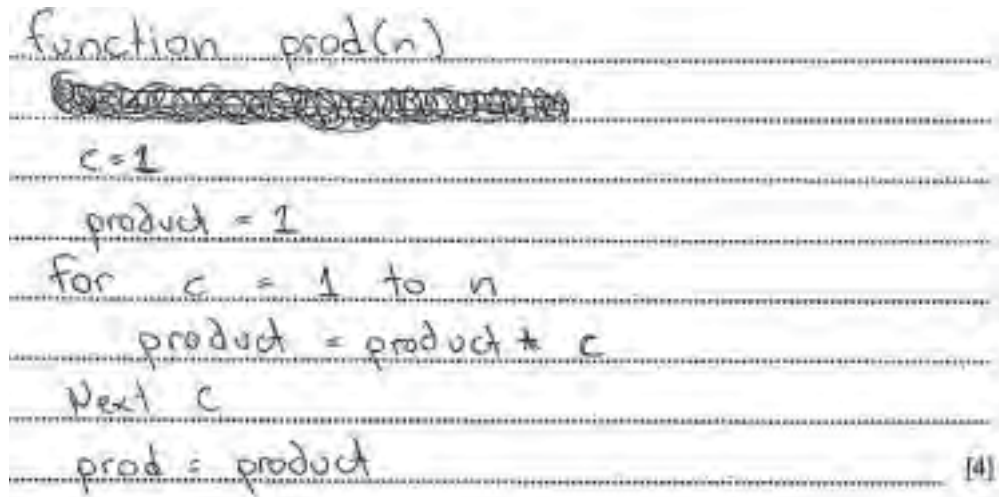 function prod(n)
c = 1
product = 1
for c = 1 to n
product = product * c
Next c
prod = product [4]